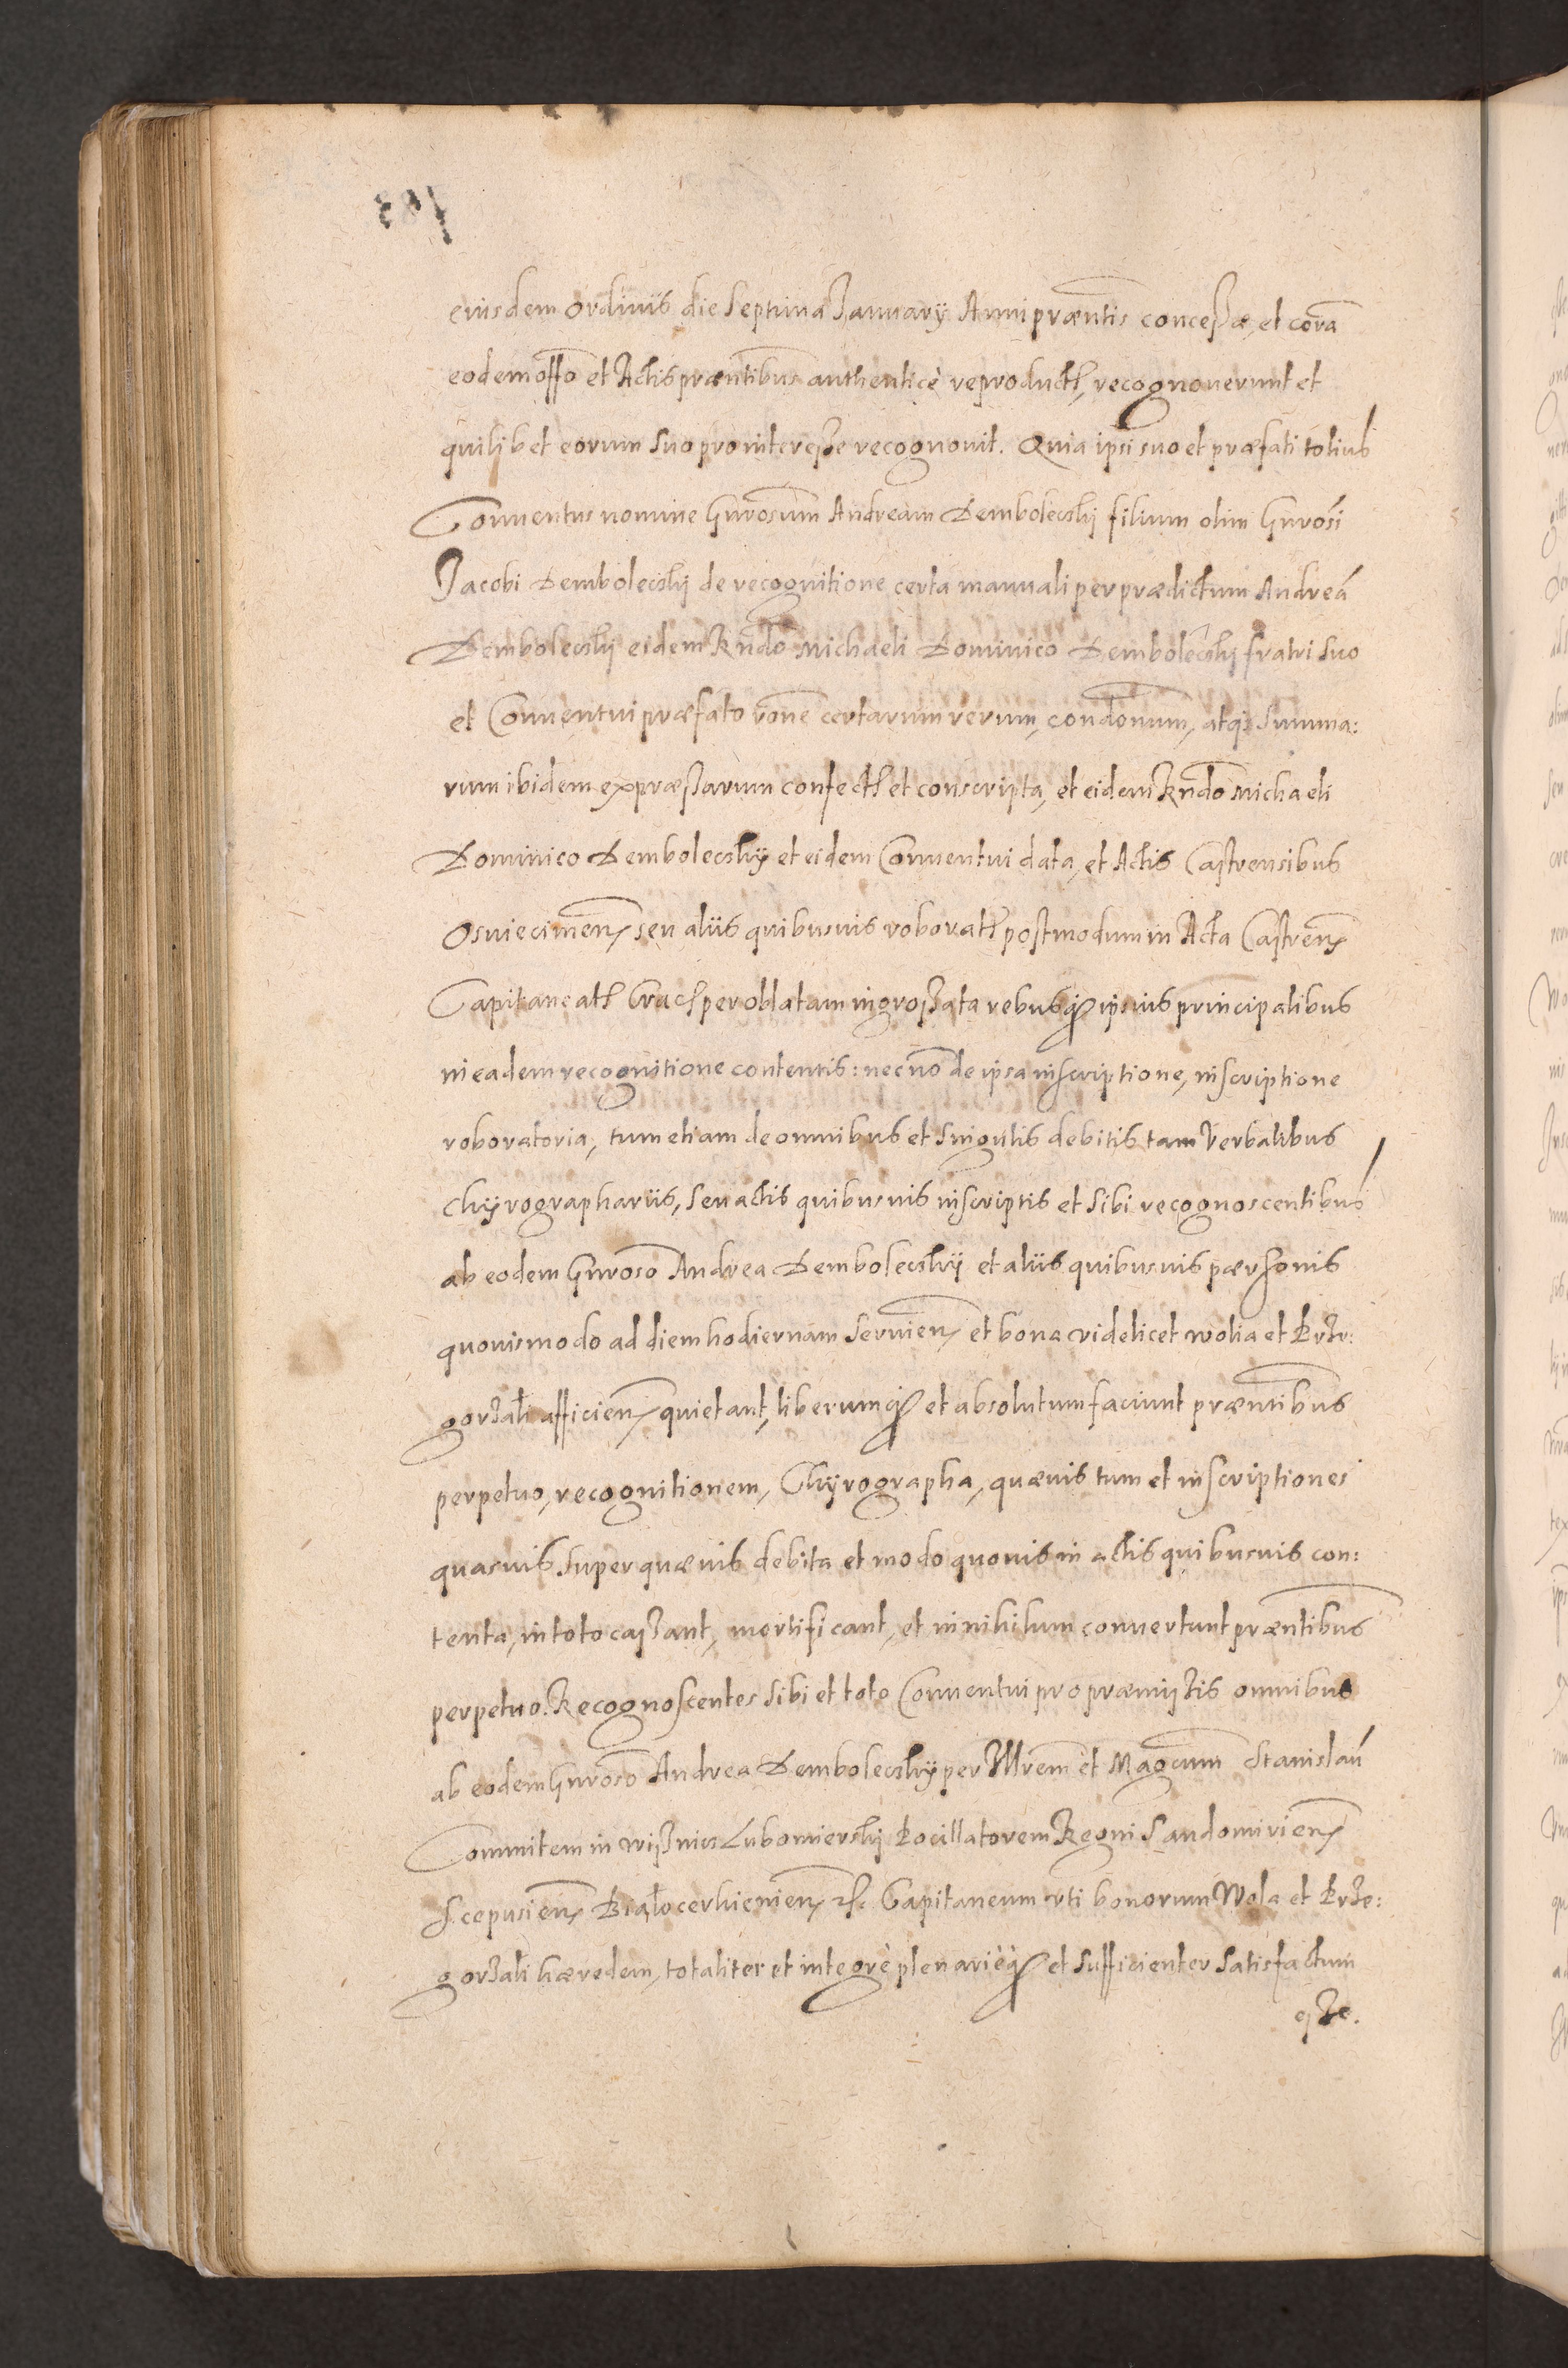 eiusdem Ordinis die Septima January Anni præntis concessæ, et corã
eodem offo et Actis præntibus authenticè reproducth, recognoverunt et
quilibet eorum suo pro interesse recognouit. Quia ipsi suo et præfati totius
Conuentus nomine Gnrosum Andream Dembolecskj filium olim Gnrosi
Jacobi Dembolecskj de recognitione certa manuali per prædictum Andreã
Dembolecskj eidem Rndo Michaeli Dominico Dembolecskj fratri suo
et Conuentui præfato rone certarum rerum, condonum, atqs summa:
rum ibidem expræssarum confecth et conscripta, et eidem Rndo Michaeli
Dominico Dembolecskÿ et eidem Conuentui data, et Actis Castrensibus
Osuiecimen seu aliis quibusuis roborath postmodum in Acta Castren
Capitaneath Crach per oblatam ingrossata rebusq ipsius principalibus
in eadem recognitione contentis: necno de ipsa inscriptione, inscriptione
roboratoria, tum etiam de omnibus et singulis debitis tam Verbalibus
Chÿrographariis, seu actis quibusuis inscriptis et sibi recognoscentibus
ab eodem Gnroso Andrea Dembolecskÿ et aliis quibusuis pærsonis
quouismodo ad diem hodiernam seruien et bona videlicet wolia et Przr:
gorzali afficien quietant, liberumq et absolutum faciunt præntibus
perpetuo, recognitionem, Chÿrographa, quæuis tum et inscriptiones
quasuis super quæuis debita et modo quouis in actis quibusuis con:
tenta, in toto cassant, mortificant, et in nihilum conuertunt præntibus
perpetuo. Recognoscentes sibi et toto Conuentui pro præmissis omnibus
ab eodem Gnroso Andrea Dembolecskÿ per Illrem et Magcum Stanislaũ
Commitem in wissnicz Lubomierskj Pocillatorem Regni Sandomirien
Scepusien Białocerkienien etc. Capitaneum vti bonorum Wola et Prze:
gorzali hæredem, totaliter et integrè plenarièq et sufficienter satisfactum
esse.